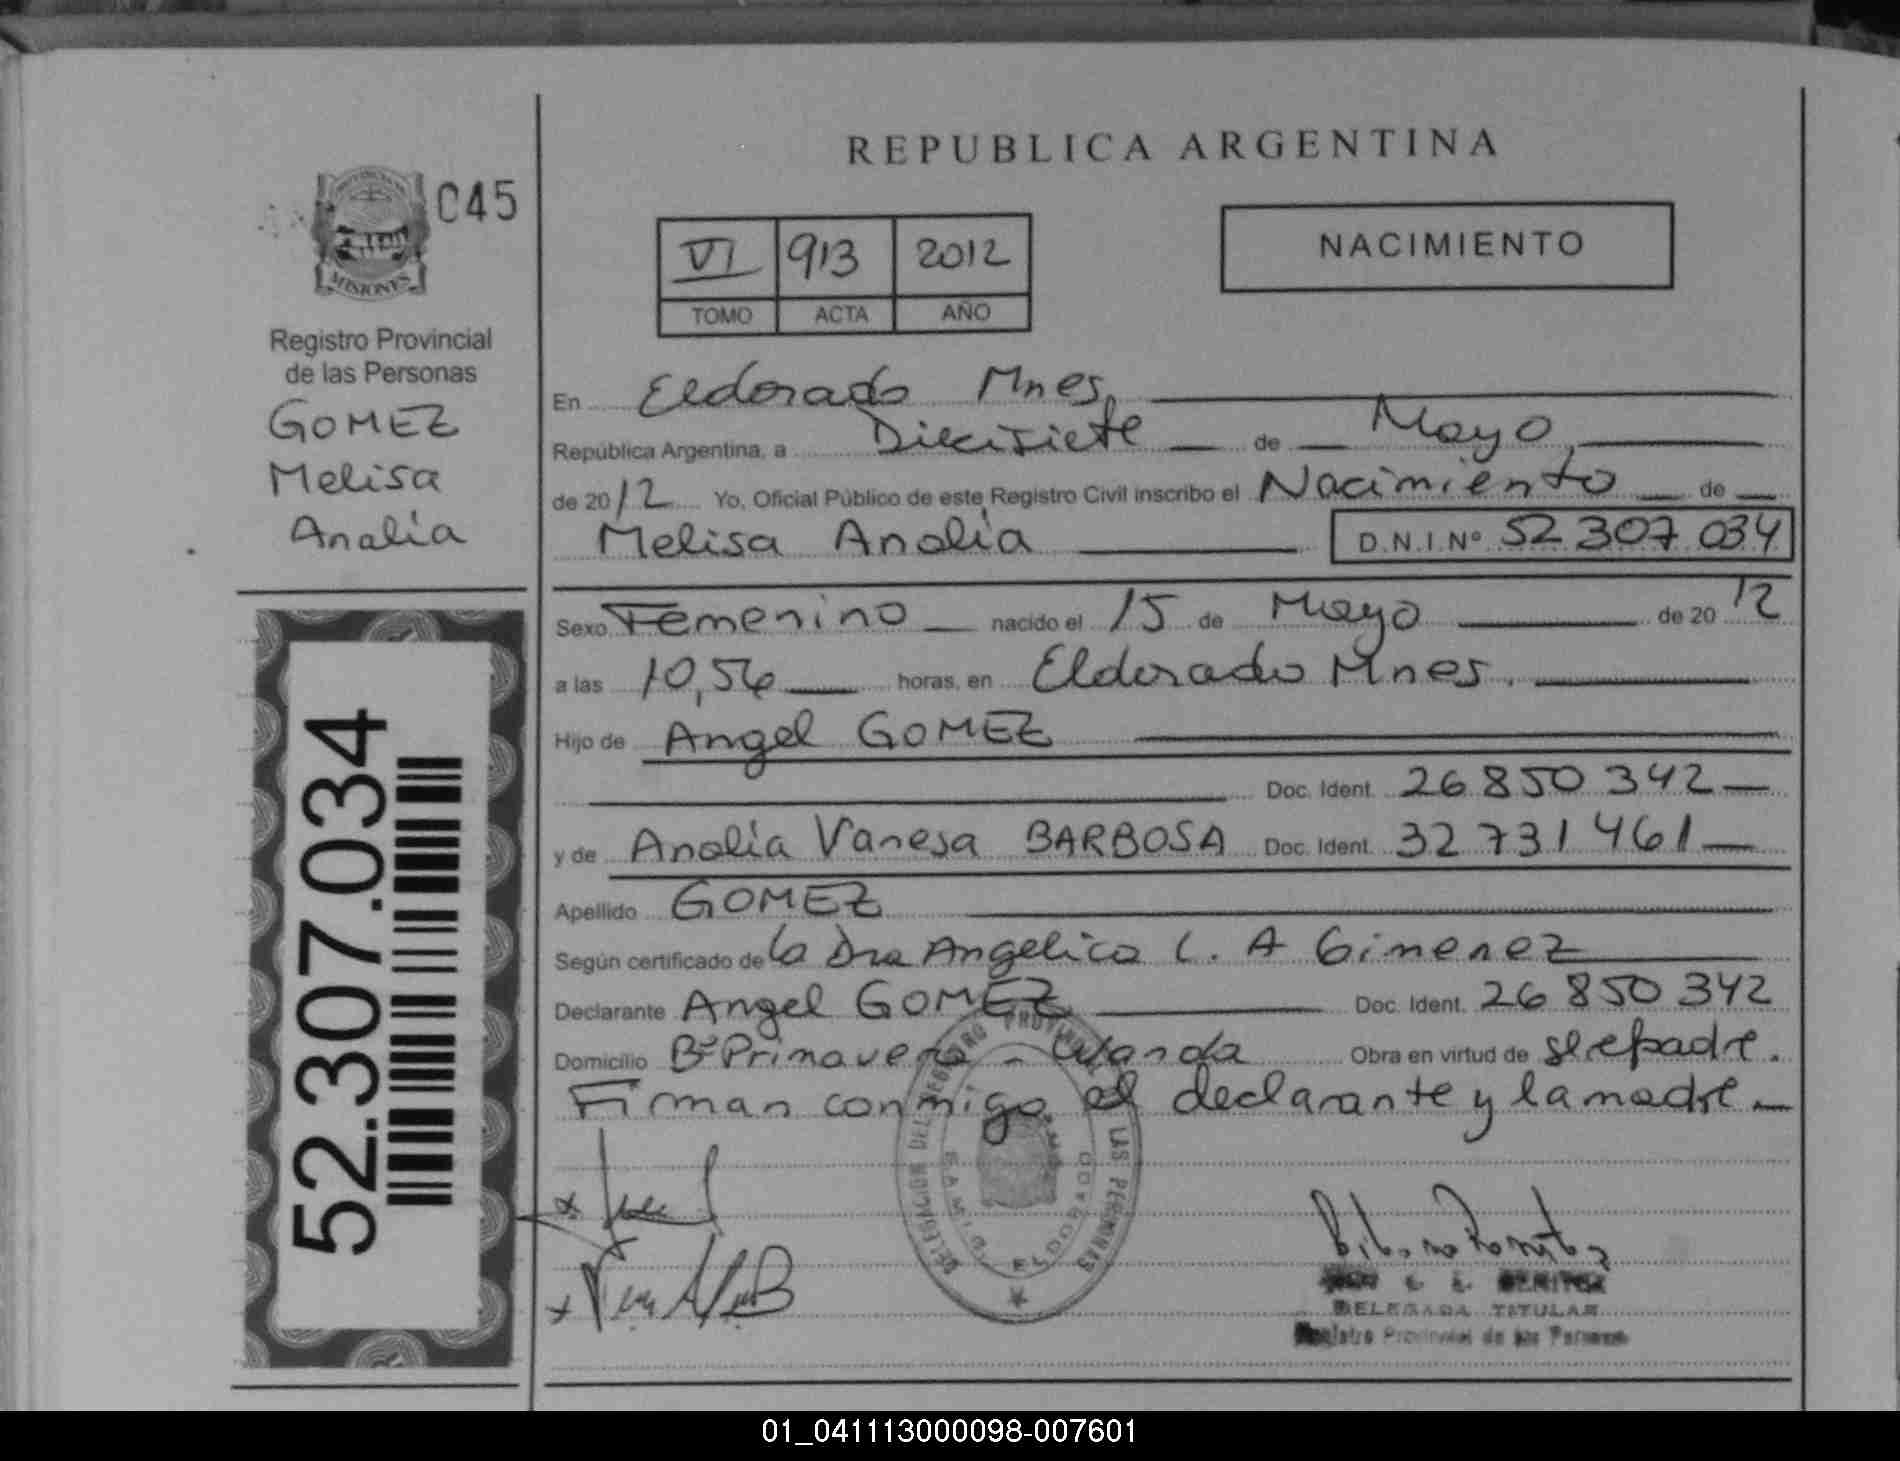 REPUBLICA ARGENTINA
C45
MISIONES
VI 913 2012
TOMO ACTA AÑO
NACIMIENTO
Registro Provincial
de las Personas
GOMEZ
Melisa
Analía
En Eldorado Mnes,
República Argentina, a Diecisiete de Mayo,
de 2012 Yo, Oficial Público de este Registro Civil inscribo el Nacimiento de
Melisa Analía D.N.I.Nº 52 307 034
Sexo Femenino nacido el 15 de Mayo de 2012
a las 10,54 horas, en Eldorado Mnes.
Hijo de Angel GOMEZ
Doc. Ident. 26 850 342
y de Analía Vanesa BARBOSA Doc. Ident. 32 731 461
Apellido GOMEZ
Según certificado de la Dra Angelica L. A Gimenez
Declarante Angel GOMEZ Doc. Ident. 26 850 342
Domicilio Bº Primavera - Wanda Obra en virtud de ser el padre.
Firman conmigo el declarante y la madre
52.307.034
DELEGACION DEL REGISTRO PROVINCIAL LAS PERSONAS
ELDORADO
DELEGADA TITULAR
Registro Provincial de las Personas
01_041113000098-007601